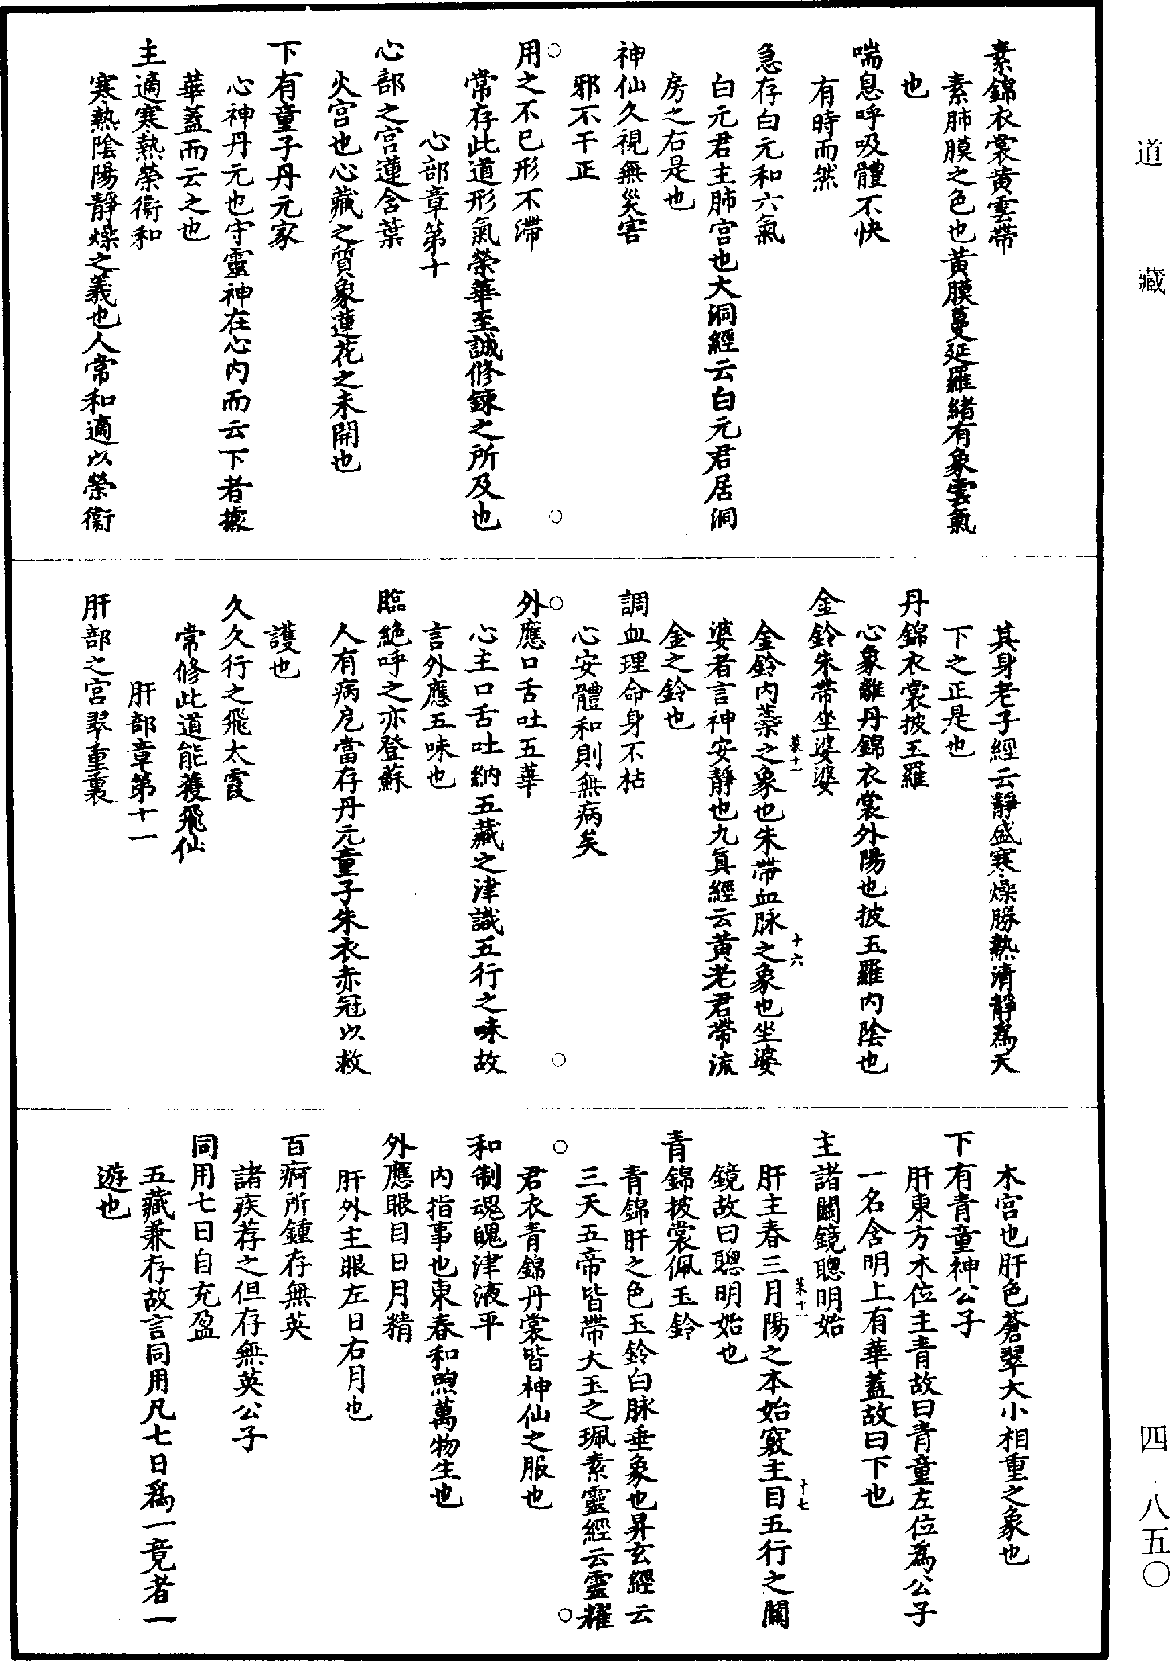 素錦衣裳黃雲帶
素肺膜之色也黃膜蔓延羅緒有象雲氣
也
喘息呼吸體不快
有時而然
急存白元和六氣
白元君主肺宮也大洞經云白元君居洞
房之右是也
神仙久視無災害
邪不干正
用之不已形不滯
常存此道形氣榮華至誠修鍊之所及也
心部章第十
心部之宮蓮含葉
火宮也心藏之質象蓮花之未開也
下有童子丹元家
心神丹元也守靈神在心內而云下者據
華蓋而云之也
主適寒熱榮衛和
寒熱陰陽靜燥之義也人常和適以榮衛
其身老子經云靜盛寒燥勝熱清靜爲天
下之正是也
丹錦衣裳披玉羅
心象離丹錦衣裳外陽也披玉羅內陰也
金鈴朱帶坐婆娑
金鈴內蘂之象也朱帶血脉之象也坐婆
婆者言神安靜也九眞經云黃老君帶流
金之鈴也
調血理命身不枯
心安體和則無病矣
外應口舌吐五華
心主口舌吐納五藏之津識五行之味故
言外應五味也
臨絕呼之亦登蘇
人有病危當存丹元童子朱衣赤冠以救
護也
久久行之飛太霞
常修此道能獲飛仙
肝部章第十一
肝部之宮翠重裏
木宮也肝色蒼翠大小相重之象也
下有青童神公子
肝東方木位主青故曰青童左位爲公子
一名含明上有華蓋故曰下也
主諸關鏡聰明始
肝主春三月陽之本始竅主目五行之關
鏡故曰聰明始也
青錦披裳佩玉鈴
青錦肝之色玉鈴白脉垂象也昇玄經云
三天五帝皆帶大玉之珮素靈經云靈耀
君衣青錦丹裳皆神仙之服也
和制魂魄津液平
內指事也東春和煦萬物生也
外應眼目日月精
肝外主眼左日右月也
百痾所鍾存無英
諸疾荐之但存無英公子
同用七日自充盈
五藏兼存故言同用凡七日爲一竟者一
遊也
十六
十七
道藏
四·八五〇